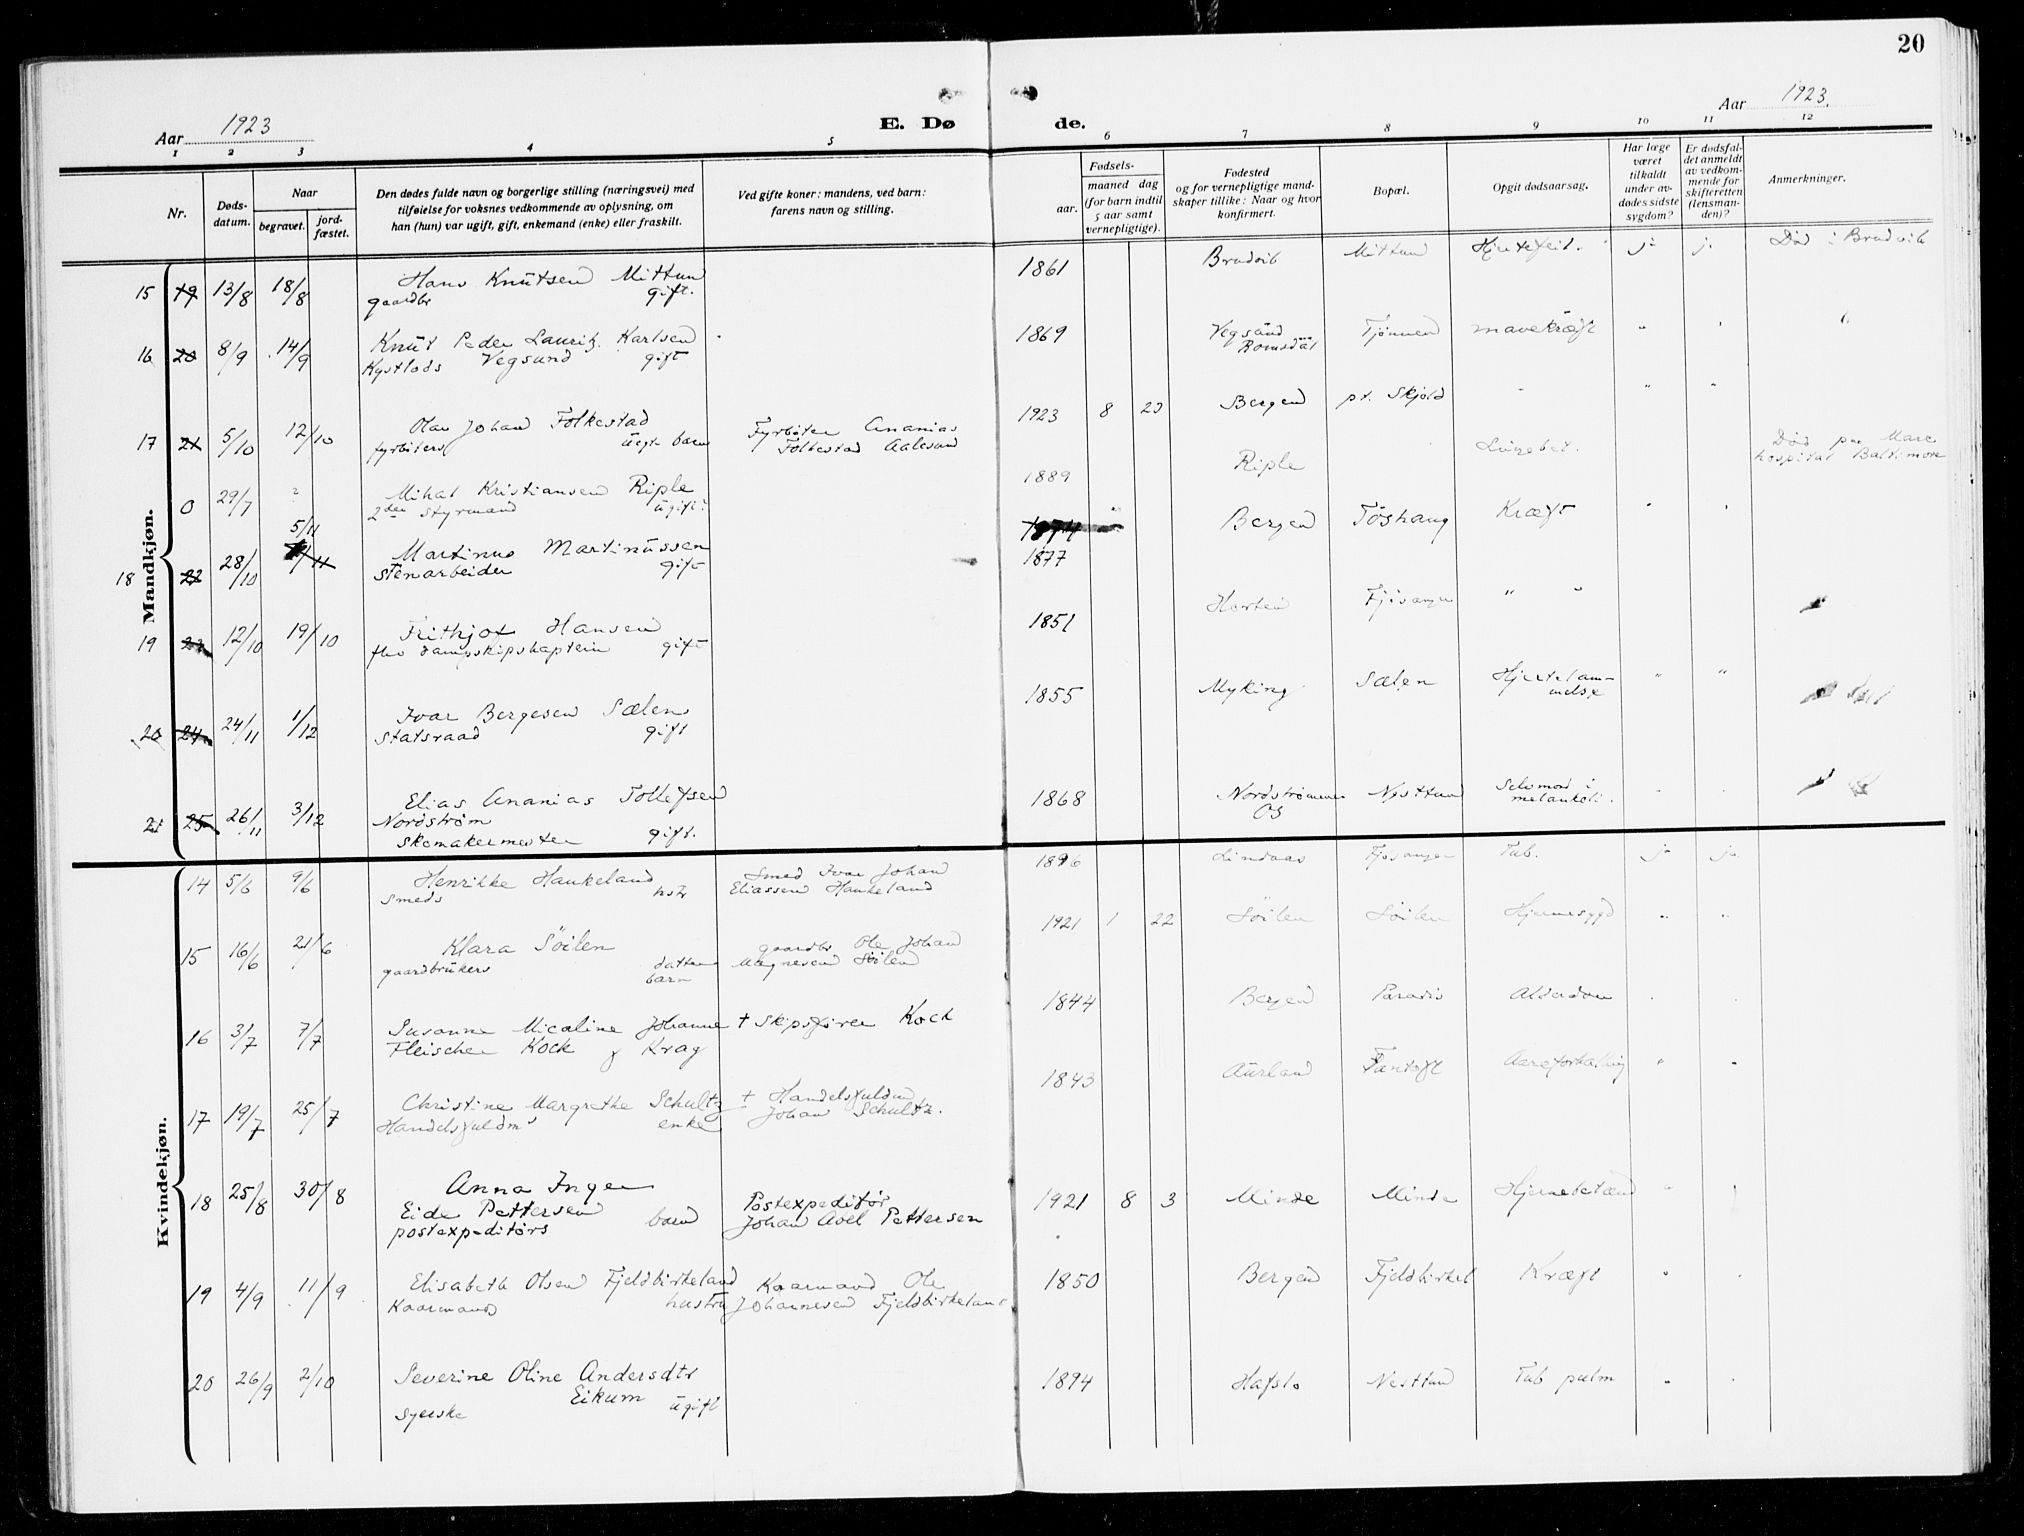 20
Aar 1923
E. Dø
de.
Aar 1923.
1 2 3 4 5 6 7 8 9 10 11 12
Nr.
Døds-
datum.
Naar
begravet.
jord-
fæstet.
Den dødes fulde navn og borgerlige stilling (næringsvei) med
tilføielse for voksnes vedkommende av oplysning, om
han (hun) var ugift, gift, enkemand (enke) eller fraskilt.
Ved gifte koner: mandens, ved barn:
farens navn og stilling.
Fødsels-
aar.
maaned dag
(for barn indtil
5 aar samt
vernepligtige).
Fødested
og for vernepligtige mand-
skaper tillike: Naar og hvor
konfirmert.
Bopæl.
Opgit dødsaarsag.
Har læge
været
tilkaldt
under av-
dødes sidste
sygdom?
Er dødsfal-
det anmeldt
av vedkom-
mende for
skifteretten
(lensman-
den)?
Anmerkninger.
Mandkjøn.
15 19 13/8 18/8 Hans Knutsen Mittun 1861 Bradvik Mittun Hjertefeil. ja j. Død i Bradvik
gaardbr gift.
16 20 8/9 14/9 Knut Peder Lauritz Karlsen 1869 Vegsund Tjønnen mavekræft " "
Kystlods Vegsund gift Romsdal
17 21 5/10 12/10 Olav Johan Folkestad Fyrbøter Ananias 1923 8 23 Bergen pt. Skjold - " "
fyrbøters uegte barn Folkestad Aalesund
0 29/7 ? Mihal Kristiansen Riple 1889 Riple Lungebet. Død paa Marc
2den styrmand ugift hospital Baltimore
18 22 28/10 5/11 Martinus Martinussen 1877 Bergen Tøshaug Kræft " "
stenarbeider gift
19 23 12/10 19/10 Frithjof Hansen 1851 Horten Fjøsanger " "
fhv dampskipskaptein gift
20 24 24/11 1/12 Ivar Bergesen Sælen 1855 Myking Sælen Hjertelam-
melse " "
statsraad gift
21 25 26/11 3/12 Elias Ananias Tollefsen 1868 Nordstrømmen Nesttun Selvmord i
Nordstrøm Os melankoli.
skomakermester gift.
Kvindekjøn.
14 5/6 9/6 Henrikke Haukeland Smed Ivar Johan 1896 Lindaas Fjøsanger Tub. ja ja
smeds hstr Eliassen Haukeland
15 16/6 21/6 Klara Søilen gaardbr Ole Johan 1921 1 22 Søilen Søilen Hjernesygd " "
gaardbrukers datter Magnesen Søilen
barn
16 3/7 7/7 Susanne Micaline Johanne + Skipsfører Kock 1844 Bergen Paradis Alderdom
Fleischer Kock f Krag
17 19/7 25/7 Christine Margrethe Schultz + Handelsfuldm 1843 Aurland Fantoft Aareforkalkning " "
Handelsfuldms enke Johan Schultz.
18 25/8 30/8 Anna Inger 1921 8 3 Minde Minde Hjernebetænd
Eide Pettersen barn Postexpeditør
postexpeditørs Johan Axel Pettersen
19 4/9 11/9 Elisabeth Olsen Fjeldbirkeland Kaarmand Ole 1850 Bergen Fjeldbirkel Kræft
Kaarmands hustru Johannesen Fjeldbirkeland
20 26/9 2/10 Severine Oline Andersdtr 1894 Hafslo Nesttun Tub pulm
Eikum
syerske ugift